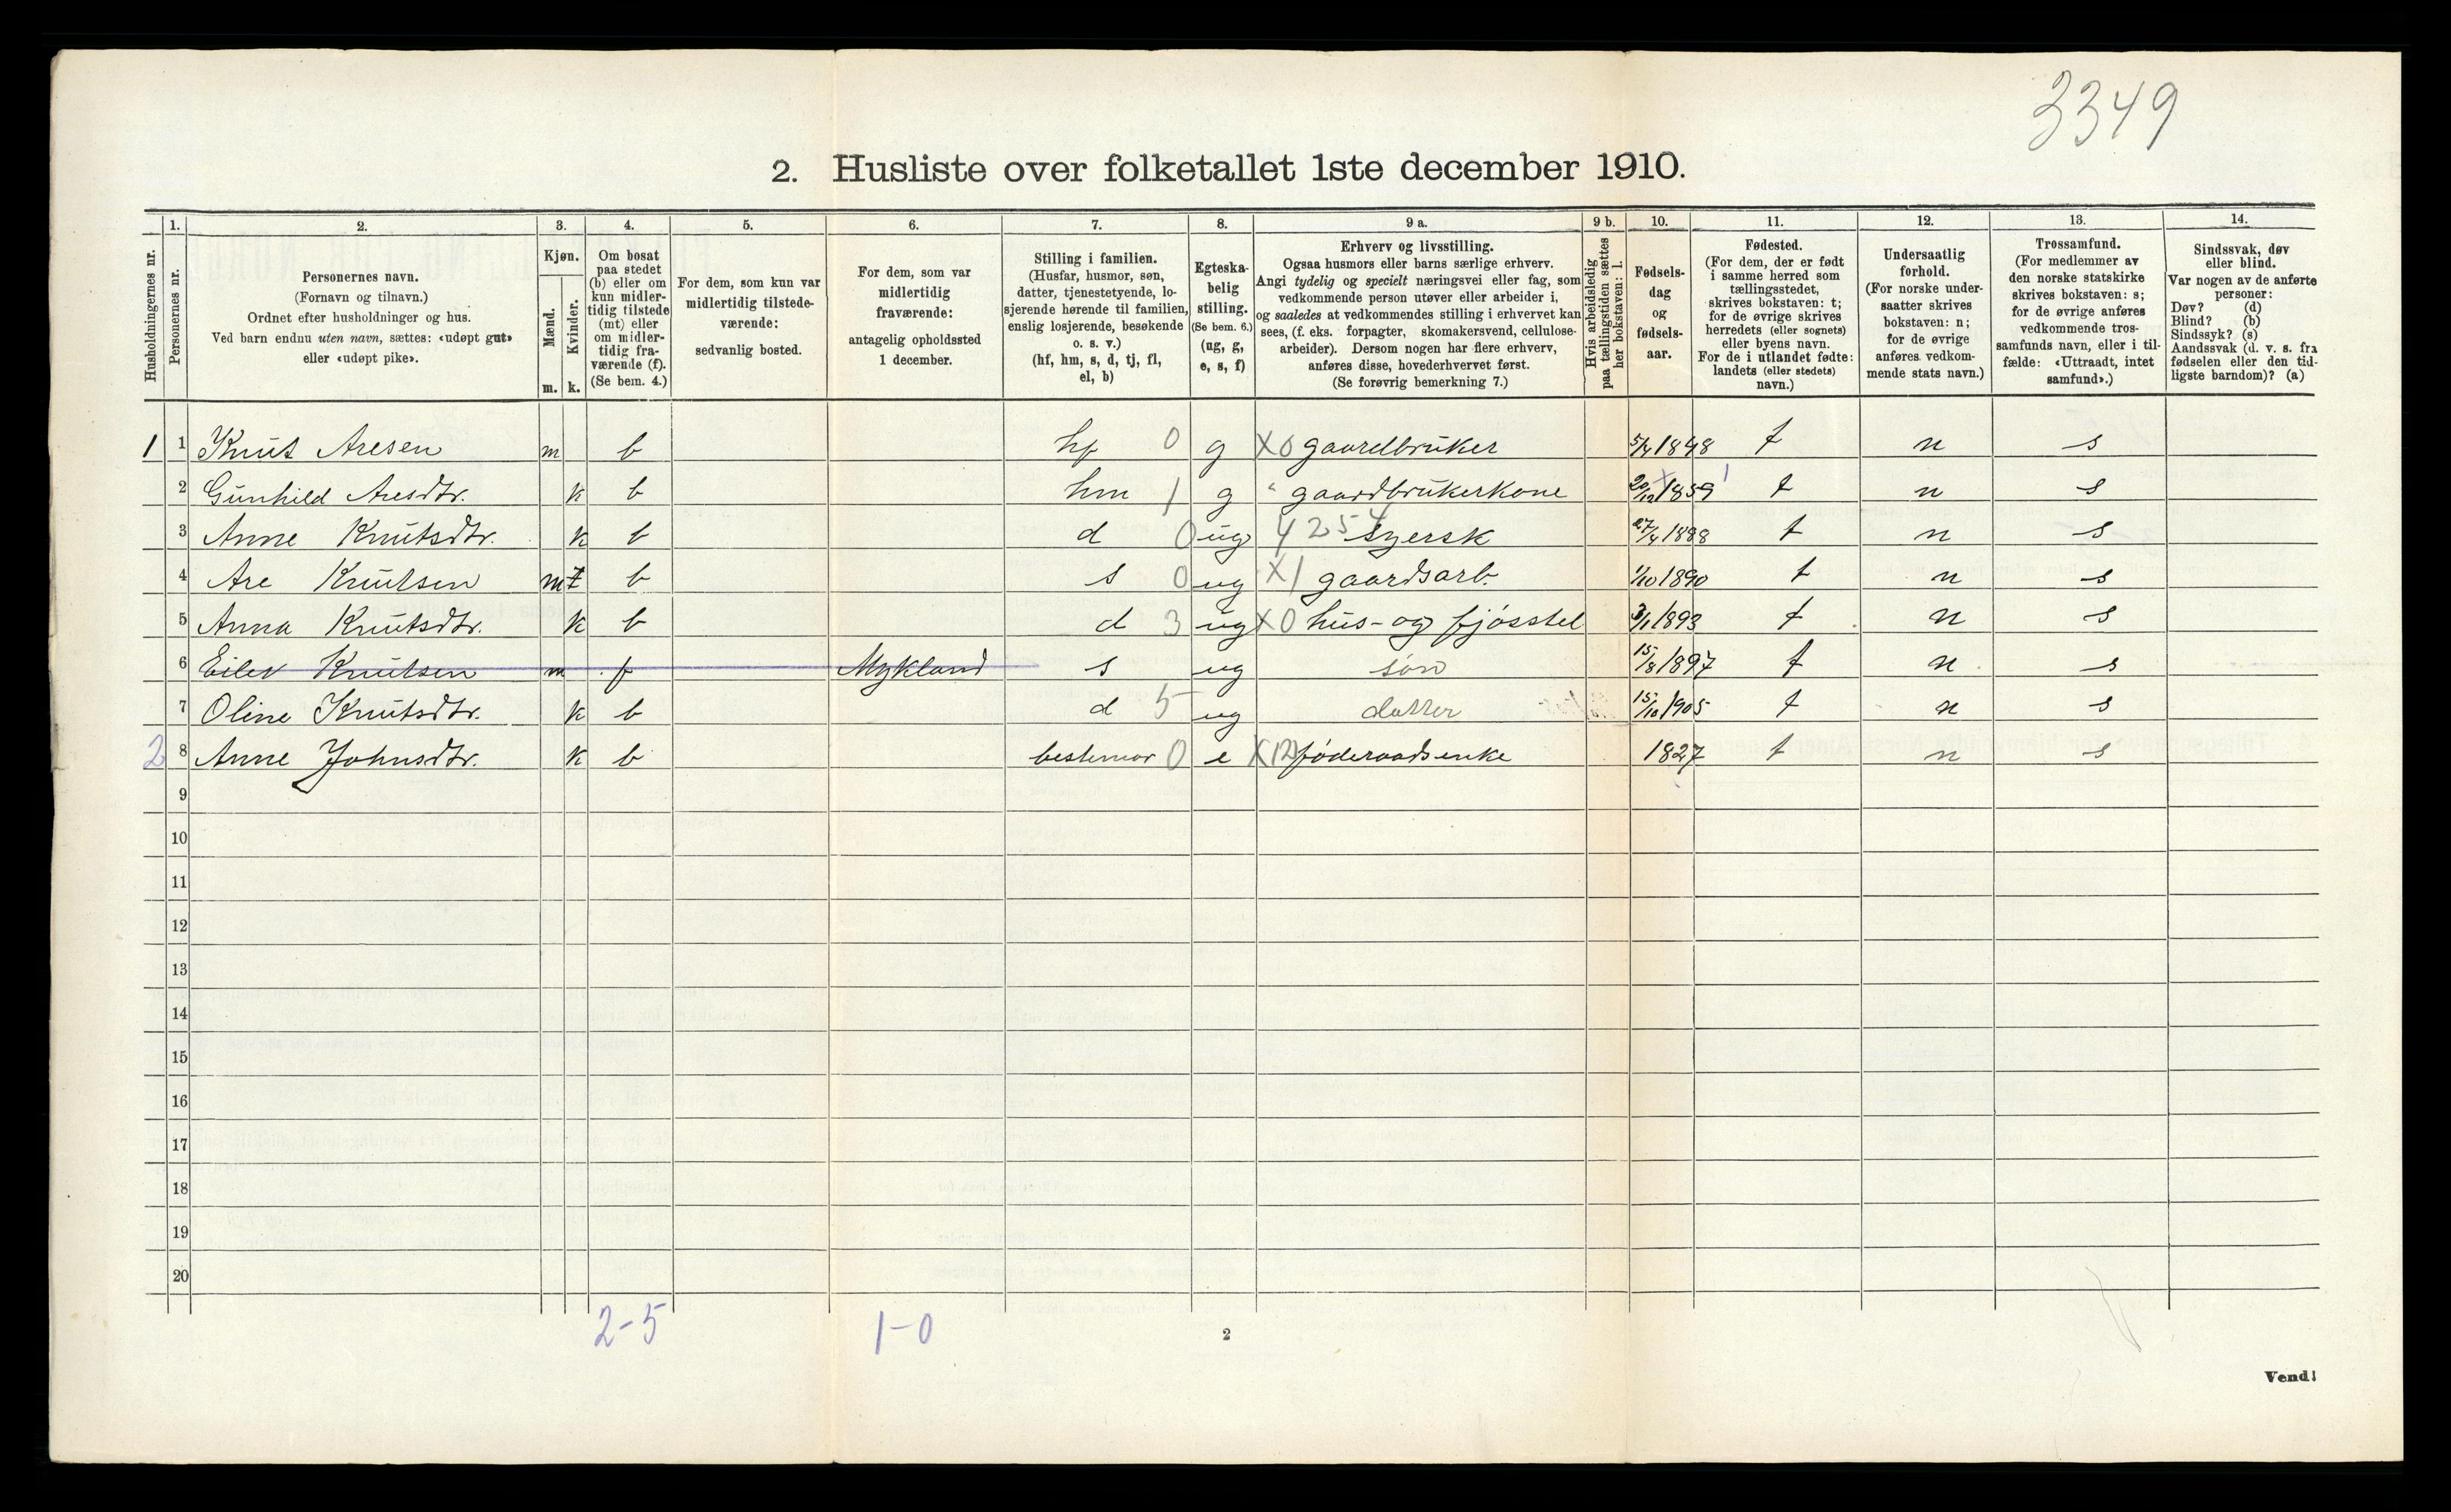 3349
2. Husliste over folketallet 1ste december 1910.
1. 2. 3. 4. 5. 6. 7. 8. 9 a. 9 b. 10. 11. 12. 13. 14.
Husholdningernes nr.
Personernes nr.
Personernes navn.
(Fornavn og tilnavn.)
Ordnet efter husholdninger og hus.
Ved barn endnu uten navn, sættes: «udøpt gut»
eller «udøpt pike».
Kjøn.
Mænd.
Kvinder.
m. k.
Om bosat
paa stedet
(b) eller om
kun midler-
tidig tilstede
(mt) eller
om midler-
tidig fra-
værende (f).
(Se bem. 4.)
For dem, som kun var
midlertidig tilstede-
værende:
sedvanlig bosted.
For dem, som var
midlertidig
fraværende:
antagelig opholdssted
1 december.
Stilling i familien.
(Husfar, husmor, søn,
datter, tjenestetyende, lo-
sjerende hørende til familien,
enslig losjerende, besøkende
o. s. v.)
(hf, hm, s, d, tj, fl,
el, b)
Egteska-
belig
stilling.
(Se bem. 6.)
(ug, g,
e, s, f)
Erhverv og livsstilling.
Ogsaa husmors eller barns særlige erhverv.
Angi tydelig og specielt næringsvei eller fag, som
vedkommende person utøver eller arbeider i,
og saaledes at vedkommendes stilling i erhvervet kan
sees, (f. eks. forpagter, skomakersvend, cellulose-
arbeider). Dersom nogen har flere erhverv,
anføres disse, hovederhvervet først.
(Se forøvrig bemerkning 7.)
Hvis arbeidsledig
paa tællingstiden sættes
her bokstaven: l.
Fødsels-
dag
og
fødsels-
aar.
Fødested.
(For dem, der er født
i samme herred som
tællingsstedet,
skrives bokstaven: t;
for de øvrige skrives
herredets (eller sognets)
eller byens navn.
For de i utlandet fødte:
landets (eller stedets)
navn.)
Undersaatlig
forhold.
(For norske under-
saatter skrives
bokstaven: n;
for de øvrige
anføres vedkom-
mende stats navn.)
Trossamfund.
(For medlemmer av
den norske statskirke
skrives bokstaven: s;
for de øvrige anføres
vedkommende tros-
samfunds navn, eller i til-
fælde: «Uttraadt, intet
samfund».)
Sindssvak, døv
eller blind.
Var nogen av de anførte
personer:
Døv? (d)
Blind? (b)
Sindssyk? (s)
Aandssvak (d. v. s. fra
fødselen eller den tid-
ligste barndom)? (a)
1 1 Knut Aresen m b hf 0 g X0 gaardbruker 5/4 1848 t n s
2 Gunhild Aresdtr. k b hm 1 g " gaardbrukerkone 20/12 1859 t n s
3 Anne Knutsdtr. k b d 0 ug 4254 syersk 27/4 1888 t n s
4 Are Knutsen m b s 0 ug X1 gaardsarb. 1/10 1890 t n s
5 Anna Knutsdtr. k b d 3 ug X0 hus- og fjøsstel 3/1 1893 t n s
6 Eilev Knutsen m f Mykland s ug søn 15/8 1897 t n s
7 Oline Knutsdtr. k b d 5 ug datter 15/10 1905 t n s
2 8 Anne Johnsdtr. k b bestemor 0 e X12 føderaadsenke 1827 t n s
9
10
11
12
13
14
15
16
17
18
19
20
2-5 1-0
2
Vend!